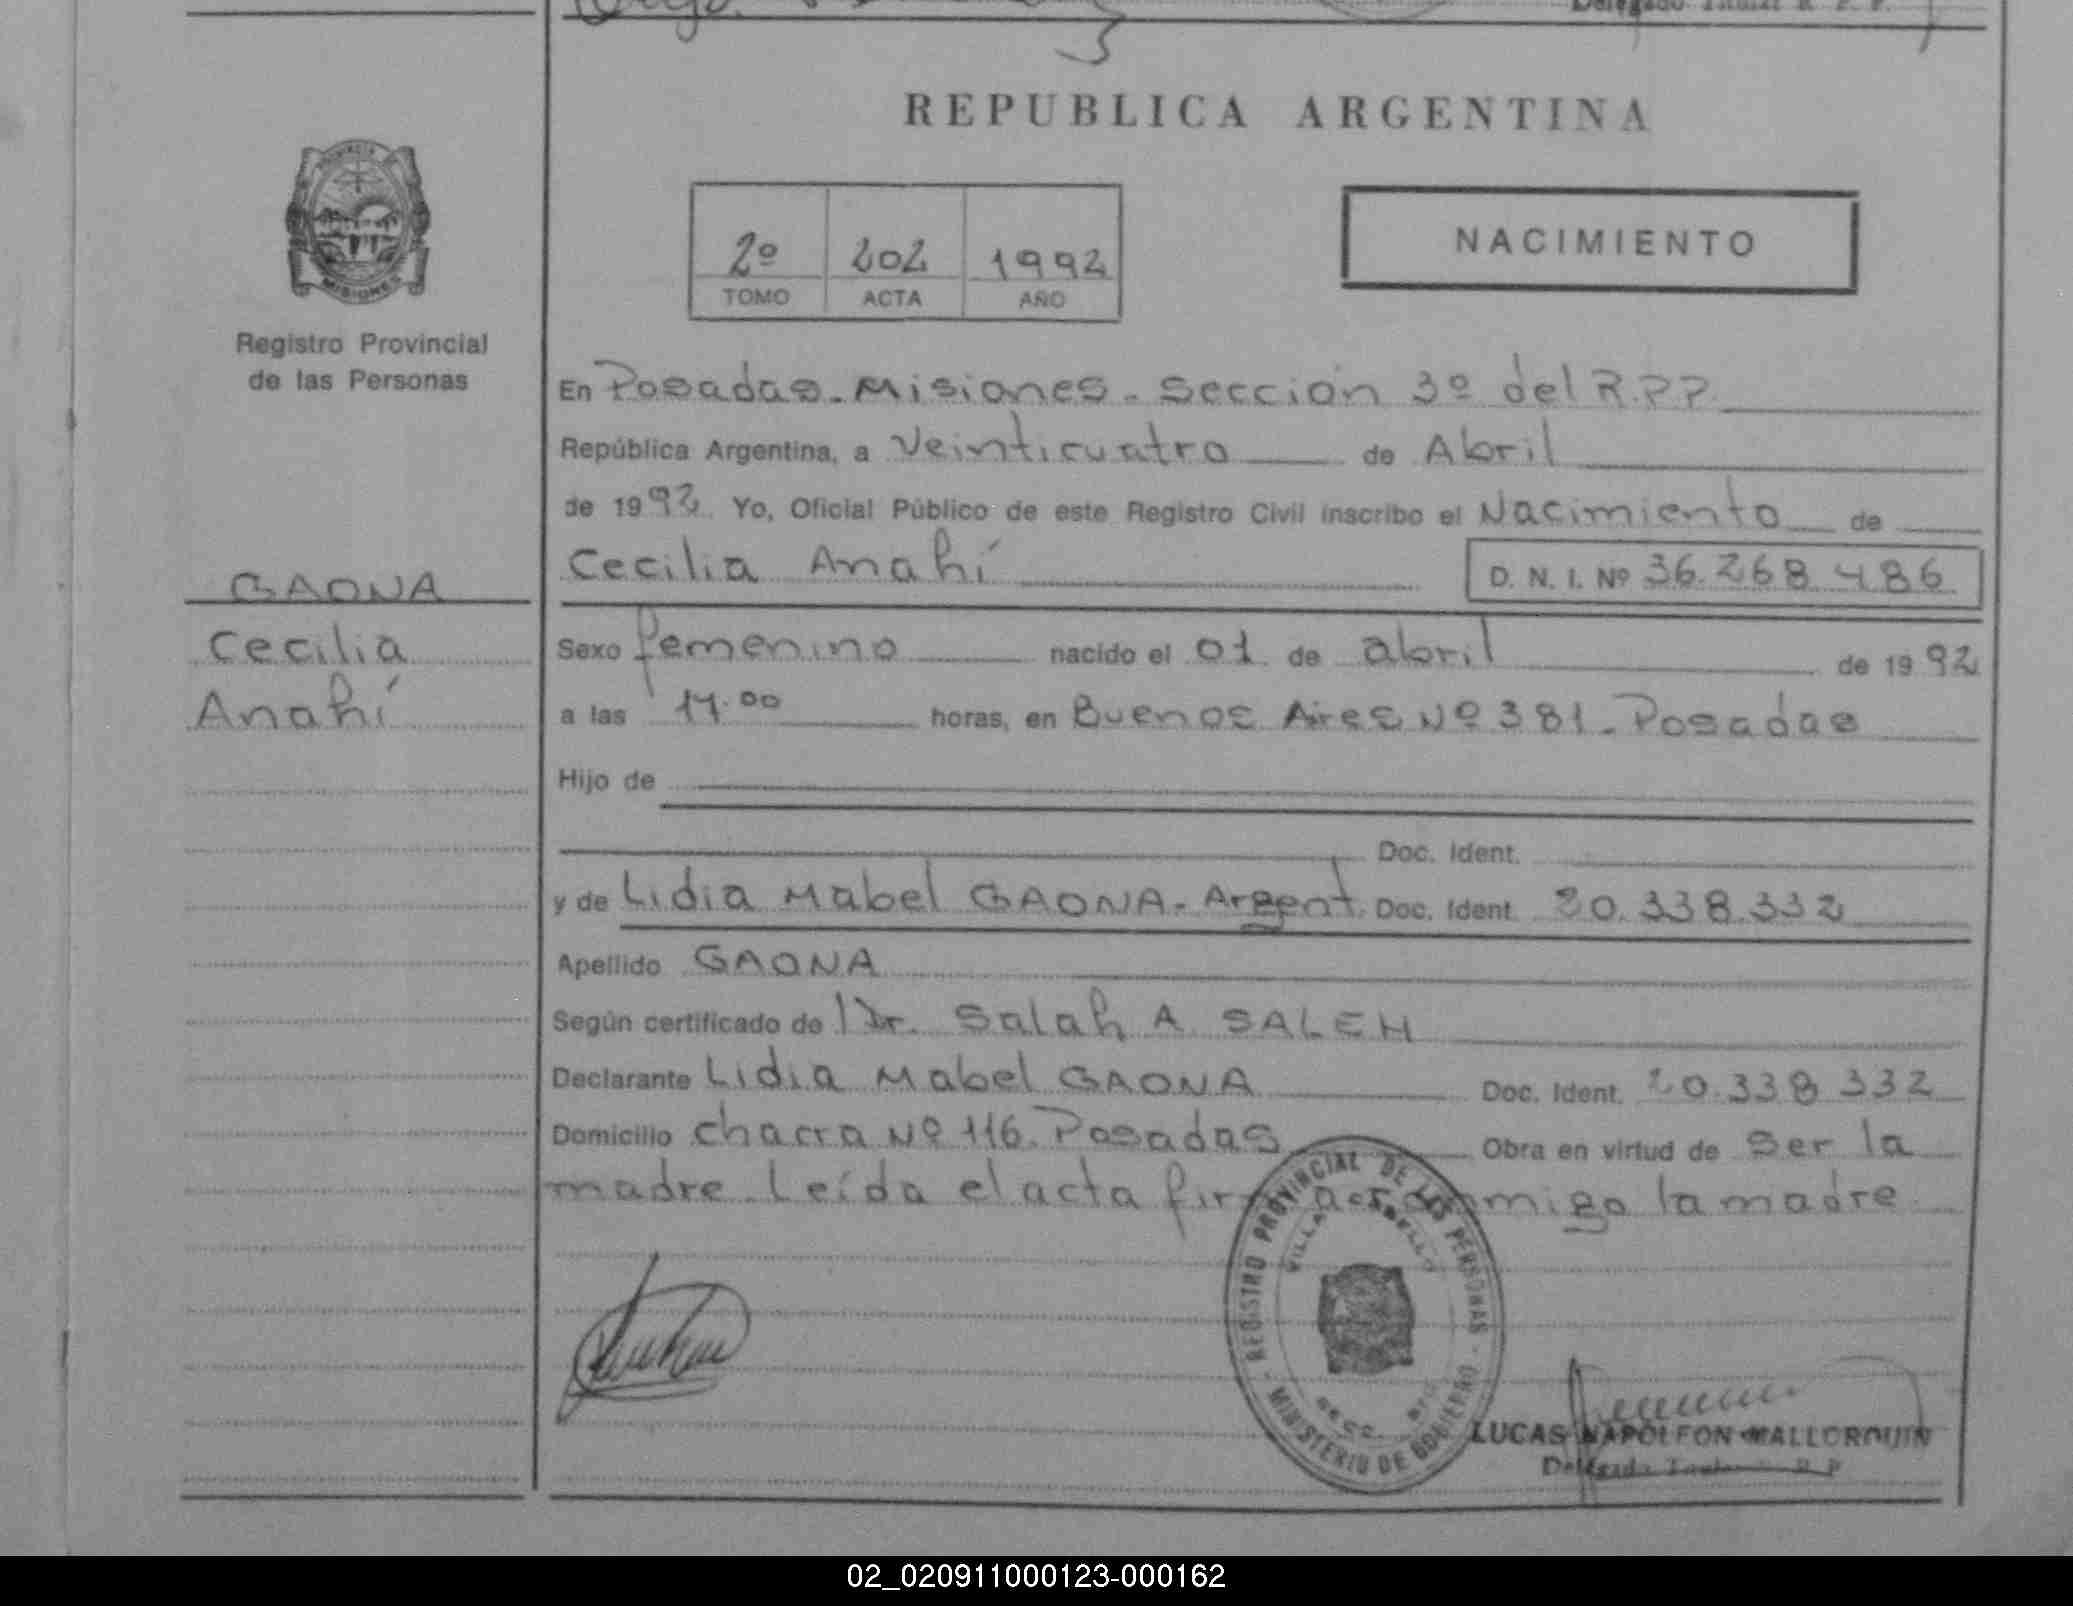 REPUBLICA ARGENTINA
PROVINCIA
MISIONES
Registro Provincial
de las Personas
2º 202 1992
TOMO ACTA AÑO
NACIMIENTO
En Posadas - Misiones - Sección 3º del R.P.P.
República Argentina, a Veinticuatro de Abril
de 1992 Yo, Oficial Público de este Registro Civil inscribo el Nacimiento de
Cecilia Anahí D. N. I. Nº 36.268.486
GAONA
Cecilia
Anahí
Sexo femenino nacido el 01 de abril de 1992
a las horas, en Buenos Aires Nº 381 - Posadas
Hijo de
Doc. Ident.
y de Lidia Mabel GAONA - Argent. Doc. Ident. 20.338.332
Apellido GAONA
Según certificado de Dr. Salah A. SALEH
Declarante Lidia Mabel GAONA Doc. Ident. 20.338.332
Domicilio chacra Nº 116. Posadas Obra en virtud de ser la
madre. Leída el acta conmigo la madre
REGISTRO PROVINCIAL DE LAS PERSONAS
VILLA
MINISTERIO DE GOBIERNO
LUCAS NAPOLEON MALLORQUIN
02_020911000123-000162